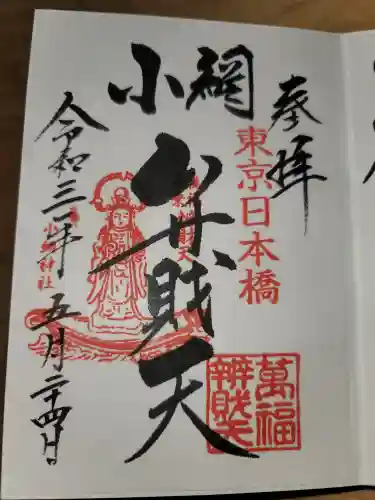 奉拝
東京日本橋
小網
弁財天
萬福
辨財天
小網神社
令和三年五月二十四日